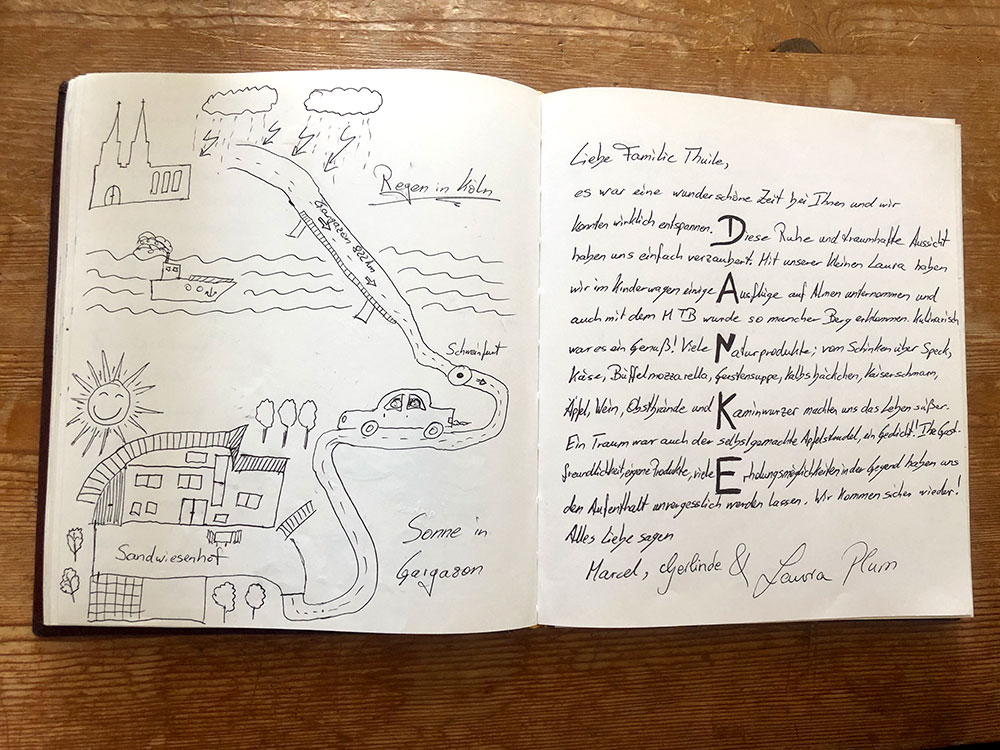 Regen in Köln
Gargazon 822 km
Schweinfurt
Sandwiesenhof
Sonne in
Gargazon
Liebe Familie Thuile,
es war eine wunderschöne Zeit bei Ihnen und wir
konnten wirklich entspannen. Diese Ruhe und traumhafte Aussicht
haben uns einfach verzaubert. Mit unserer kleinen Laura haben
wir im Kinderwagen einige Ausflüge auf Almen unternommen und
auch mit dem MTB wurde so mancher Berg erklommen. Kulinarisch
war es ein Genuß! Viele Naturprodukte; vom Schinken über Speck,
Käse, Büffelmozzarella, Gerstensuppe, Kalbsbäckchen, Kaiserschmarn,
Äpfel, Wein, Obstbrände und Kaminwurzer machten uns das Leben süßer.
Ein Traum war auch der selbstgemachte Apfelstrudel, ein Gedicht! Ihre Gast-
freundlichkeit, eigene Produkte, viele Erholungsmöglichkeiten in der Gegend haben uns
den Aufenthalt unvergesslich werden lassen. Wir kommen sicher wieder!
Alles Liebe sagen
Marcel, Gerlinde & Laura Plum